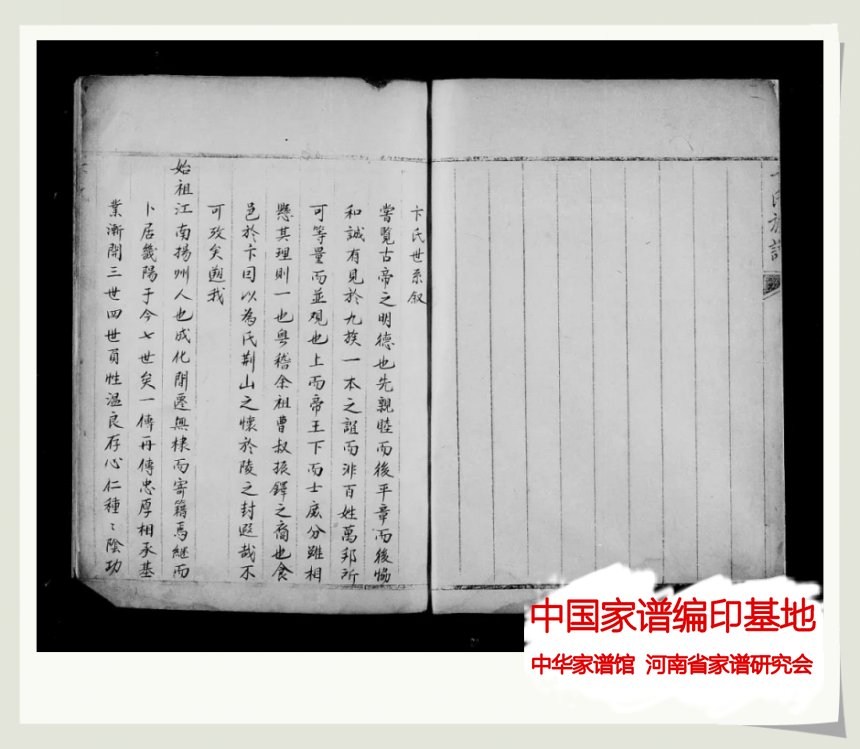 卞氏世系叙
嘗覽古帝之明德也先親睦而後平章而後恊
和誠有見於九族一本之誼而非百姓萬邦所
可等量而並觀也上而帝王下而士庶分雖相
懸其理則一也粤稽余祖曹叔振鐸之裔也食
邑於卞因以為氏荆山之懷於陵之封遐哉不
可攷矣迨我
始祖江南揚州人也成化間遷無棣而寄籍焉繼而
卜居畿陽于今七世矣一傳再傳忠厚相承基
業漸開三世四世百姓温良存心仁種〻陰功
卞氏族譜
中国家谱编印基地
中华家谱馆 河南省家谱研究会